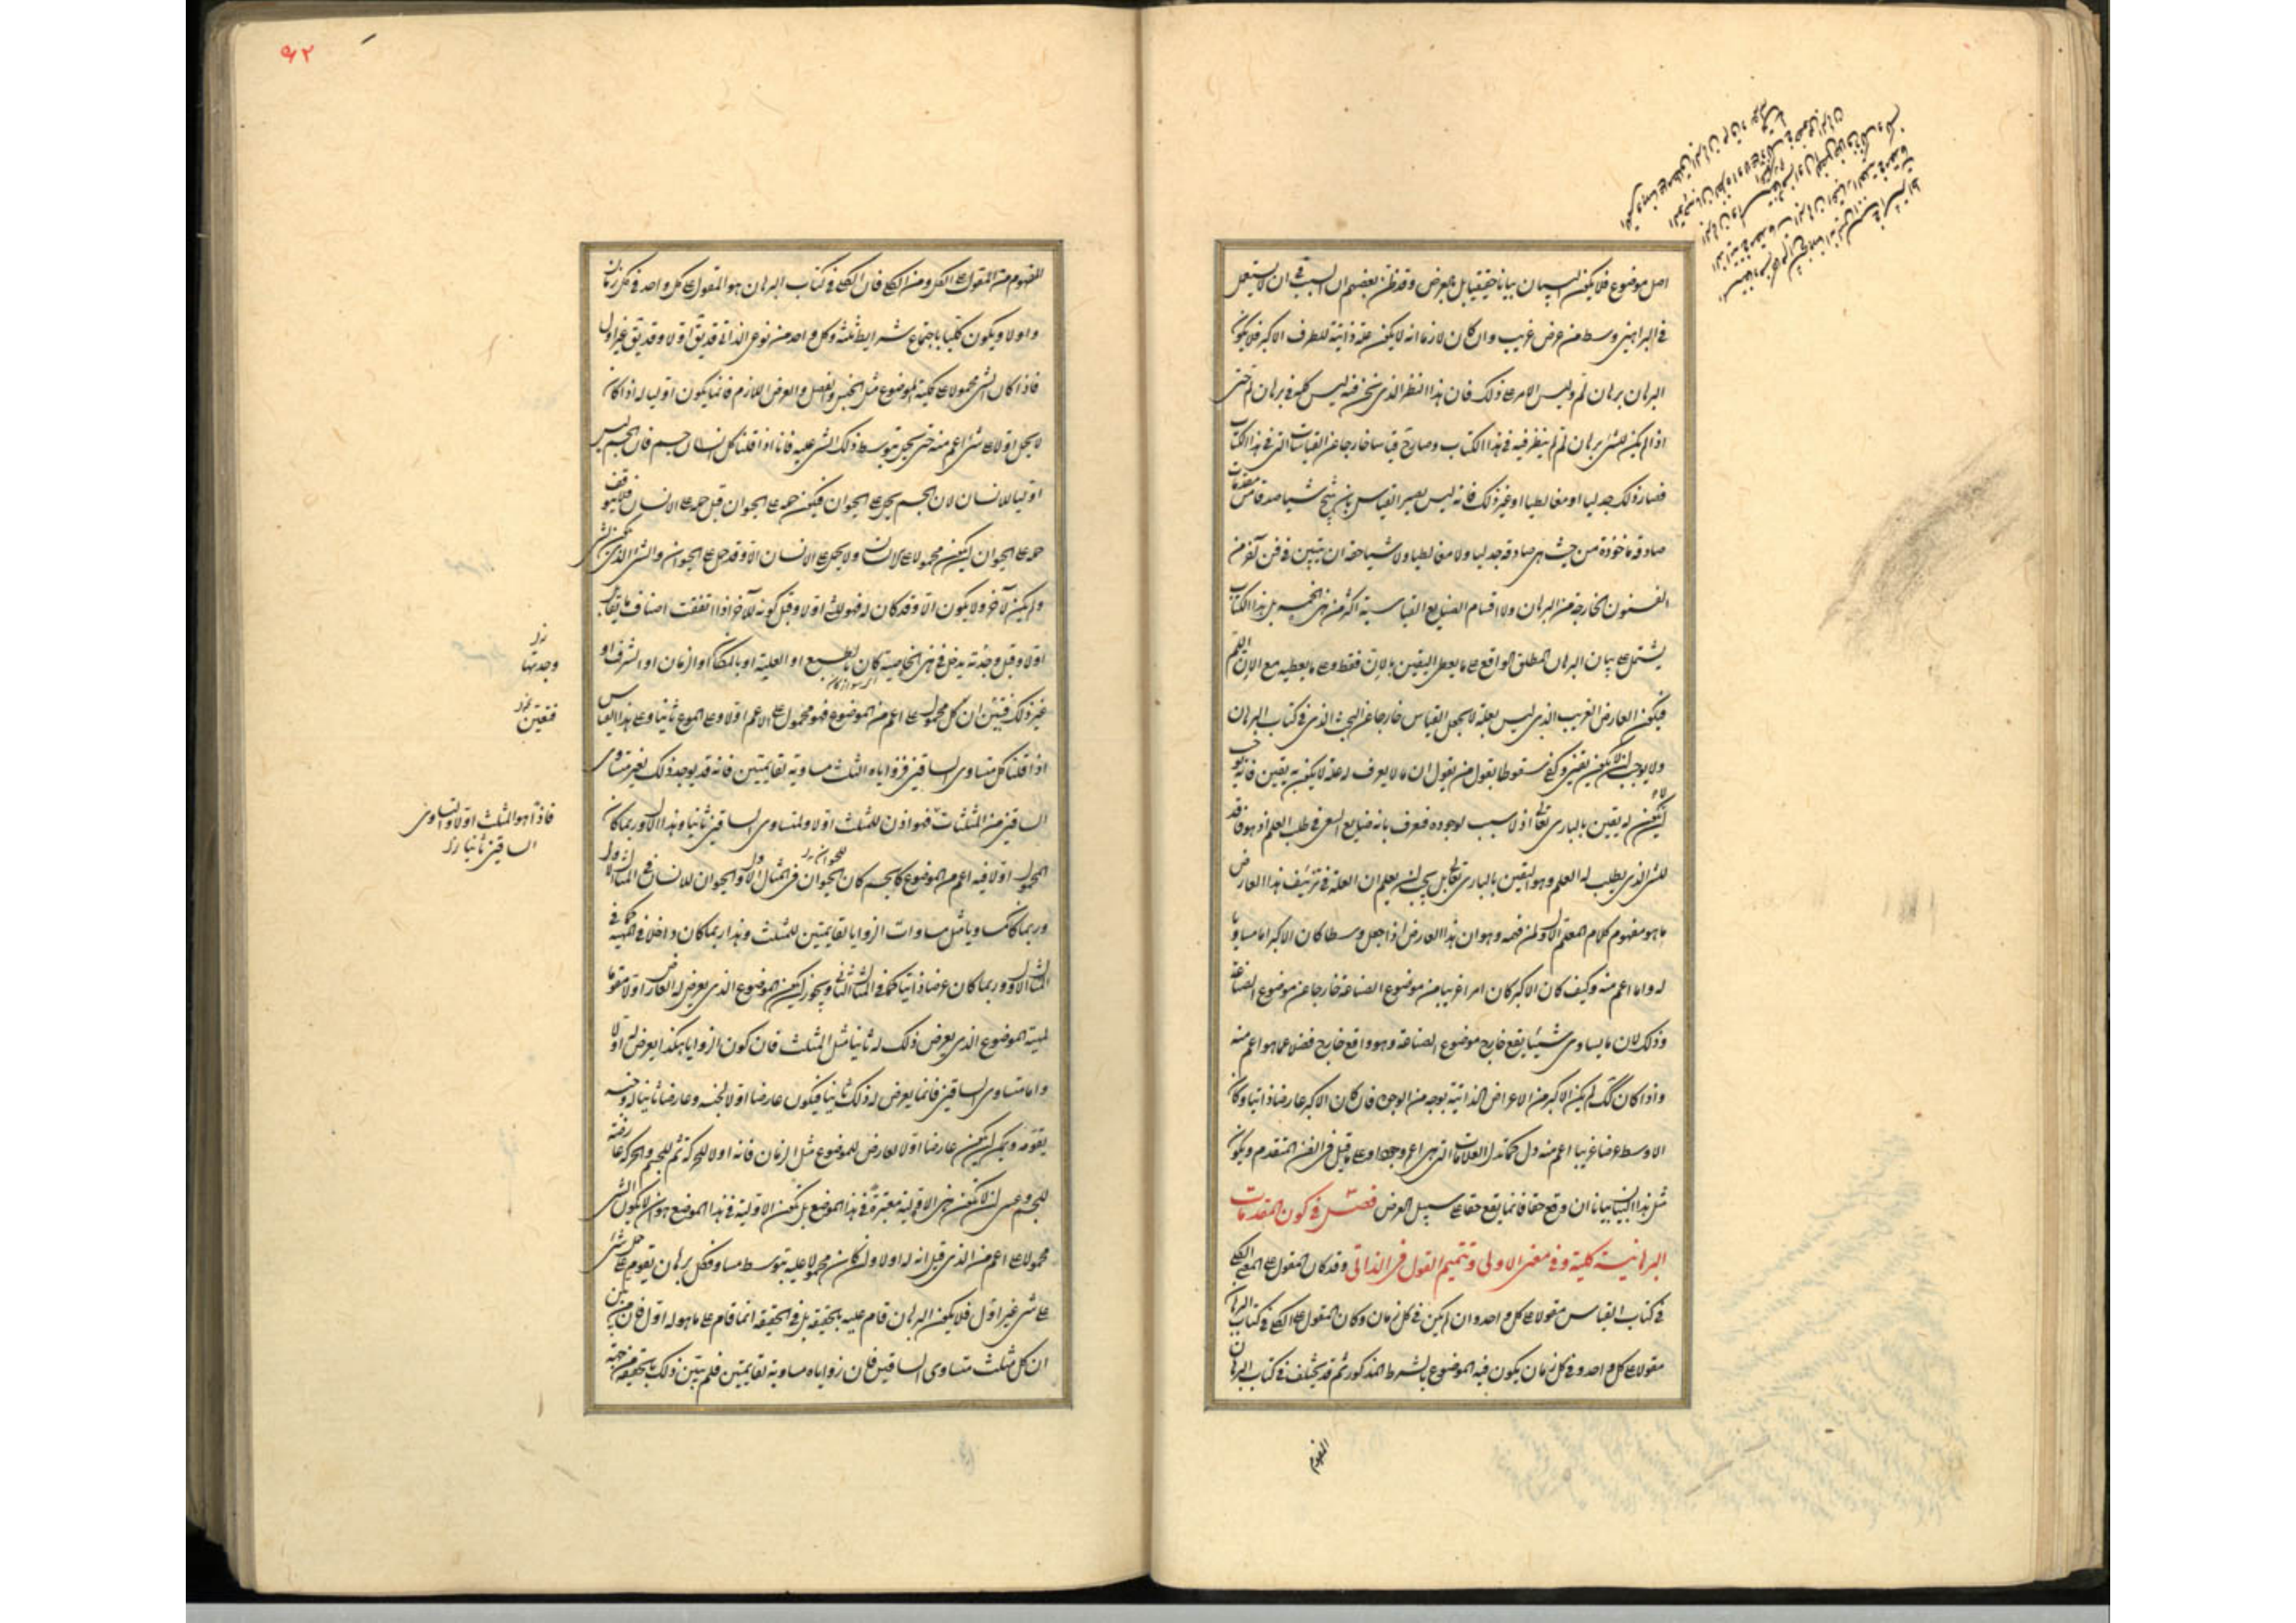 اصل موضوع فلا يكون البيان بيانا حقيقيا بل بالعرض وقد ظن بعضهم ان السبب في ان لا يستعمل
في البراهين وسط من عرض غريب وان كان لازما انه لا يكون علة ذاتية للطرف الاكبر فلا يكون
البرهان برهان لم وليس الامر على ذلك فان هذا النظر الذي نحن فيه ليس كله في برهان لم حتى
اذا لم يكن للشيء برهان لم لم ينظر فيه في هذا الكتاب وصار قياسا خارجا عن القياسات التي في هذا الكتاب
فصار ذلك جدليا او مغالطيا او غير ذلك فانه ليس يصير القياس بان ينتج شيئا صدقا من مقدمات
صادقة ماخوذة من حيث هي صادقة جدليا ولا مغالطيا ولا شيئا حقه ان يتبين في فن آخر من
الفنون الخارجة من البرهان ولا اقسام الصنايع القياسية اكثر من هذه الخمسة بل هذا الكتاب
يشتمل على بيان البرهان المطلق الواقع على ما يعطي اليقين بالان فقط وعلى ما يعطيه مع الان اللم
فيكون العارض الغريب الذي ليس بعلة لا يجعل القياس خارجا عن البحث الذي في كتاب البرهان
ولا يوجب ان لا يكون يقين وكفى سقوطا بقول من يقول ان ما لا يعرف له علة لا يكون به يقين فانه يوجب
ان لا يكون له يقين بالباري تعالى اذ لا سبب لوجوده فيعرف بانه ضايع السعي في طلب العلم اذ هو فاقد
للشيء الذي يطلب له العلم وهو اليقين بالباري تعالى بل يجب ان يعلم ان العلة في تزييف هذا العارض
ما هو مفهوم كلام المعلم الاول لمن فهمه وهو ان هذا العارض اذا جعل وسطا كان الاكبر اما مساويا
له واما اعم منه وكيف كان الاكبر كان امرا غريبا من موضوع الصناعة خارجا عن موضوع الصناعة
وذلك لان ما يساوي شيئا يقع خارج موضوع الصناعة وهو واقع خارج فضلا عما هو اعم منه
واذا كان كك لم يكن الاكبر من الاعراض الذاتية بوجه من الوجوه فان كان الاكبر عارضا ذاتيا وكان
الاوسط عرضا غريبا اعم منه دل كما تدل العلامات التي هي اعم وجودا وعلى ما قيل في الفن المتقدم ويكون
مثل هذا البيان بيانا ان وقع حقا فانما يقع حقا على سبيل العرض فصل في كون المقدمات
البرهانية كلية وفي معنى الاولى وتتميم القول في الذاتي وقد كان المقول على الكلي
في كتاب القياس مقولا على كل واحد وان لم يكن في كل زمان وكان المقول على الكلي في كتاب البرهان
مقولا على كل واحد وفي كل زمان يكون فيه الموضوع بالشرط المذكور ثم قد يختلف في كتاب البرهان
المفهوم
٩٢
المفهوم من المقول على الكل ومن الكلي فان الكلي في كتاب البرهان هو المقول على كل واحد في كل زمان
واولا ويكون كليا باجتماع شرايط ثلثة وكل واحد من نوعي الذاتي قد يق اولا وقد يق غير اول
فاذا كان الشيء محمولا على كلية الموضوع مثل الجنس والفصل والعرض اللازم فانما يكون اوليا له اذا كان
لا يحمل اولا على شيء اعم منه حتى يحمل بتوسط ذلك الشيء عليه فانا اذا قلنا كل انسان جسم فان الجسم ليس
اوليا للانسان لان الجسم يحمل على الحيوان فيكون حمله على الحيوان قبل حمله على الانسان فلا يتوقف
حمله على الحيوان ليكون محمولا على الانسان ولا يحمل على الانسان الا وقد حمل على الحيوان والشيء الذي يكون لشيء
ولم يكن لآخر ولا يكون الا وقد كان له فهو للشيء اولا وقبل كونه للآخر اذا اتفقت اصناف ما يقال
اولا وقبل وجدته يدخل في هذه الخاصية كان بالطبع او العلية او بالمكان او الزمان او الشرف او
غير ذلك فتبين ان كل محمول على اعم من الموضوع فهو محمول على الاعم اولا وعلى الموضوع ثانيا وعلى هذا القياس
اذا قلنا كل متساوي الساقين فزواياه الثلث مساوية لقايمتين فانه قد يوجد ذلك لغير متساوي
الساقين من المثلثات فهو اذن للمثلث اولا ولمتساوي الساقين ثانيا وهذا الاول ربما كان
المحمول اولا فيه اعم من الموضوع كالجسم كان للحيوان في المثال الاول والحيوان للانسان في المثال الاول
وربما كان مساويا مثل مساوات الزوايا لقايمتين للمثلث وهذا ربما كان داخلا في المهية كما في
المثال الاول وربما كان عرضا ذاتيا كما في المثال الثاني ويجوز ان يكون الموضوع الذي يعرض له العارض اولا مقوما
لمهية الموضوع الذي يعرض ذلك له ثانيا مثل المثلث فان كون الزوايا هكذا يعرض له اولا
واما متساوي الساقين فانما يعرض له ذلك ثانيا فيكون عارضا اولا لجنسه وعارضا ثانيا له وجنسه
يقومه ويمكن ان يكون عارضا اولا لعارض للموضوع مثل الزمان فانه اولا للحركة ثم للجسم والحركة عارضة
للجسم وعسى ان لا تكون هذه الاولية معتبرة في هذا الموضع بل تكون الاولية في هذا الموضع هو ان لا يكون الشيء
محمولا على اعم من الذي قيل انه له اولا وان كان محمولا عليه بتوسط مساو فكل برهان يقوم على حمل شيء
على شيء غير اول فلا يكون البرهان قام عليه بالحقيقة بل في الحقيقة انما قام على ما هو له اول فان من تبين
ان كل مثلث متساوي الساقين فان زواياه مساوية لقايمتين فلم يتبين ذلك بالحقيقة من جهة
وجدتها
فتعين
فاذا هو للمثلث اولا ولمتساوي
الساقين ثانيا